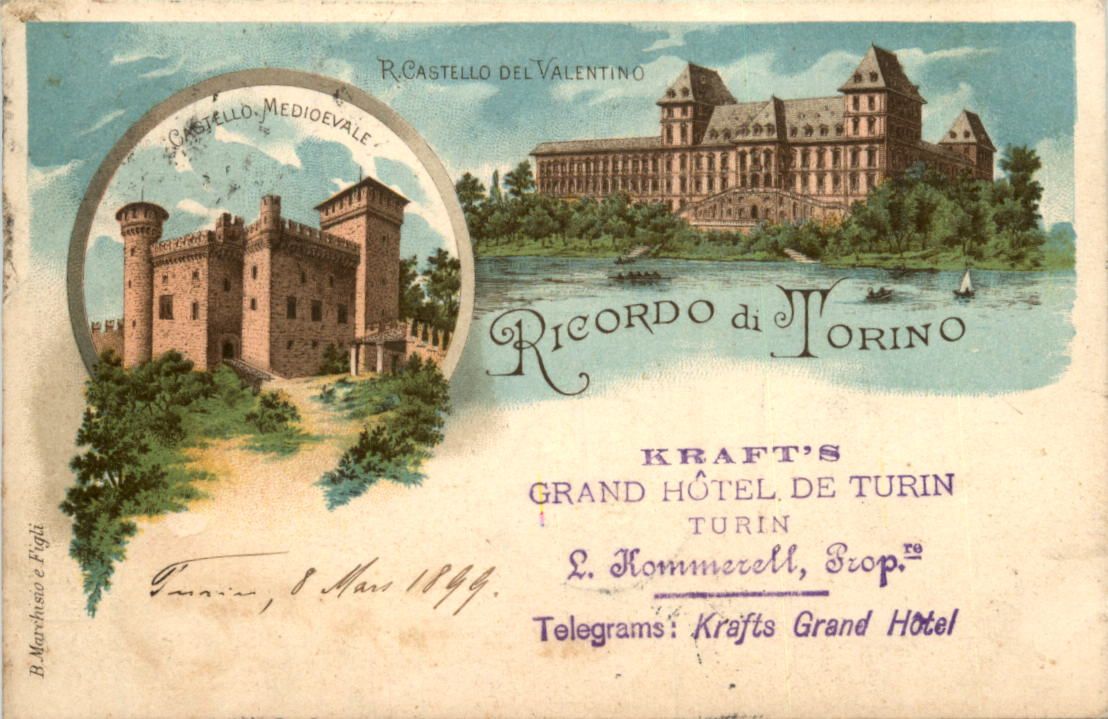 R. CASTELLO DEL VALENTINO
CASTELLO MEDIOEVALE
RICORDO di TORINO
KRAFT'S
GRAND HÔTEL DE TURIN
TURIN
L. Kommerell, Prop.re
Telegrams: Krafts Grand Hôtel
Turin, 8 Mars 1899.
B. Marchisio e Figli